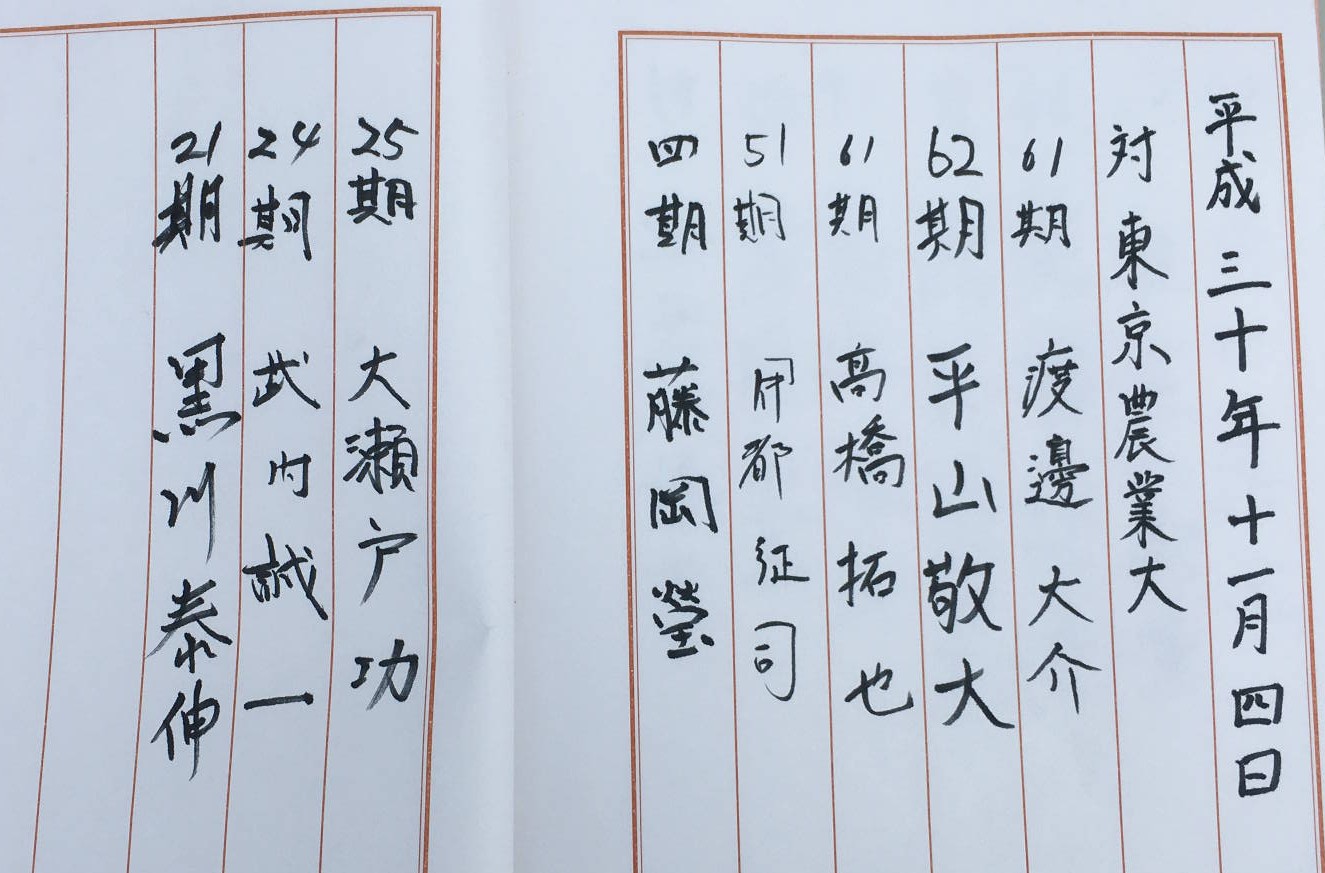 平成三十年十一月四日
対 東京農業大
61期 渡邊 大介
62期 平山敬大
61期 高橋 拓也
51期 都征司
四期 藤岡 瑩
25期 大瀬戸 功
24期 武内誠一
21期 黒川泰伸